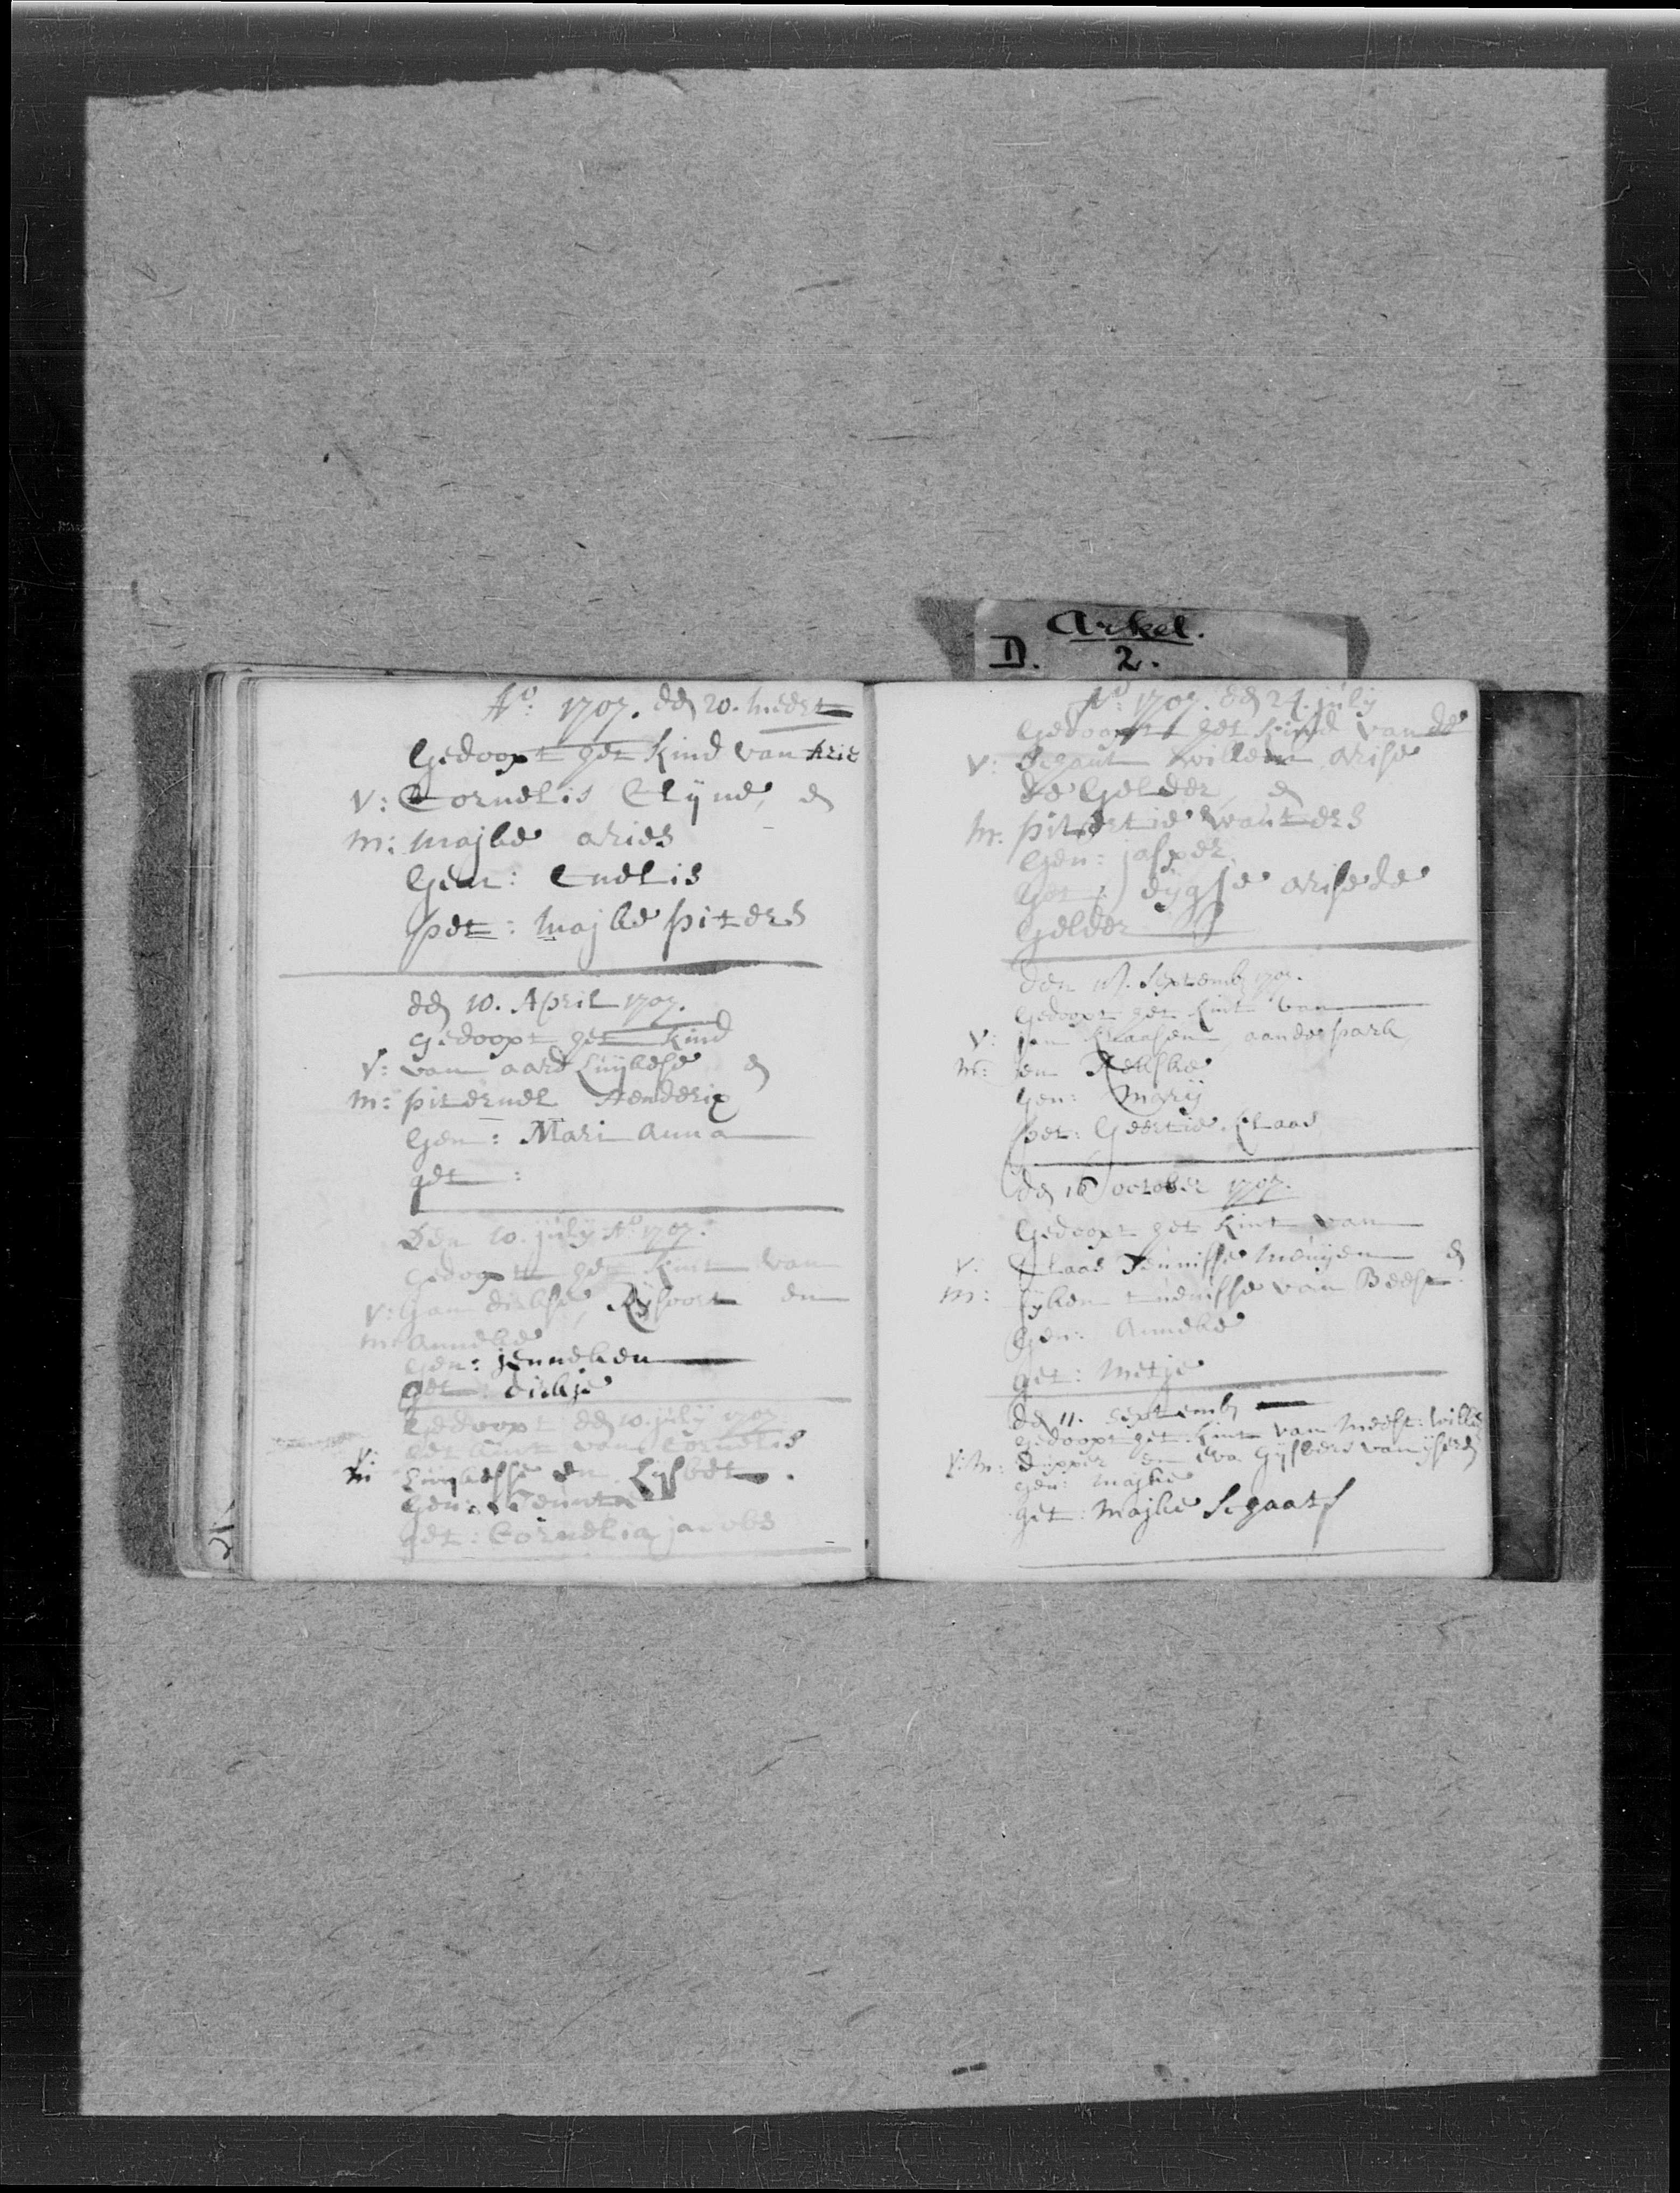 Arkel.
D. 2.
Ao: 1707. den 20. meert
Gedoopt het kind van Arie
V: Cornelis Clijne, en
m: majke aries
Gen: Cnelis
get: majke piters
den 10. April 1707.
gedoopt het kind
V: van aard Luijkese en
m: piternel Henderix
Gen: Mari anna
get:
Den 10. julij Ao 1707.
gedoopt het kint van
V: Jan dirkse Rijsoort en
m: anneke
Gen: jenneken
get: dirkje
Gedoopt den 10. julij 1707
het kint van Cornelis
V:
m Luijkesse en Lijsbet.
Gen: Teuntie
get: Cornelia jacobs
21
Ao: 1707. den 24. julij
Gedoopt het kind van de
V: Schout Willem arise
de Gelder, en
m. pitertie wouters
Gen: jasper
Get: Sijgje arise de
Gelder
den 18. Septemb 1707.
Gedoopt het kint van
V: jan Klaasen aan de spark
m: en Neeske
Gen: Marij
get: Geertie Claas
den 16 october 1707.
Gedoopt het kint van
V: Claas Teunisse Meuijen en
m: ijken tuenisse van Beest
Gen: Anneke
get: Metje
den 11. Septemb
gedoopt het kint van Meest: Wille
V: m: Cupper en Eva Gijsbers van ijseren
gen: majke
get: Majke Schaats